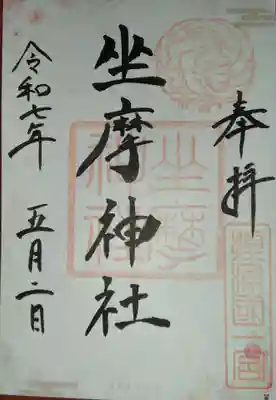 奉拝
坐摩神社
令和七年 五月二日
坐摩神社
摂津国一宮